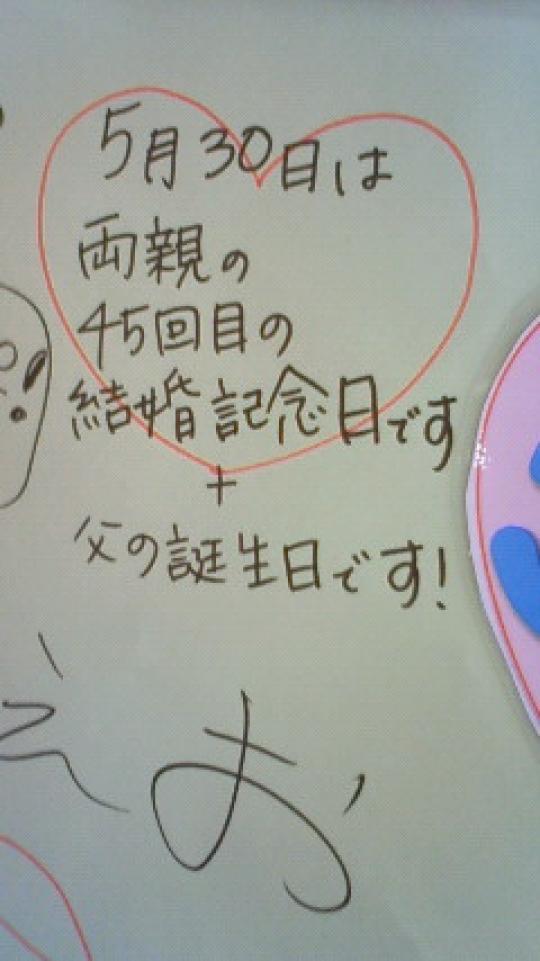 5月30日は
両親の
45回目の
結婚記念日です
+
父の誕生日です!
えお